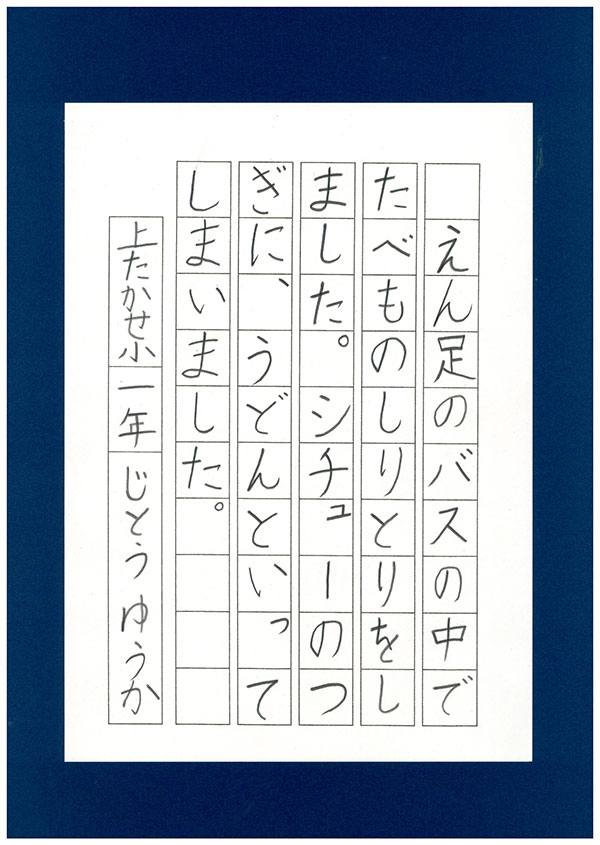 えん足のバスの中で
たべものしりとりをし
ました。シチューのつ
ぎに、うどんといって
しまいました。
上たかせ小 一年 じとう ゆうか